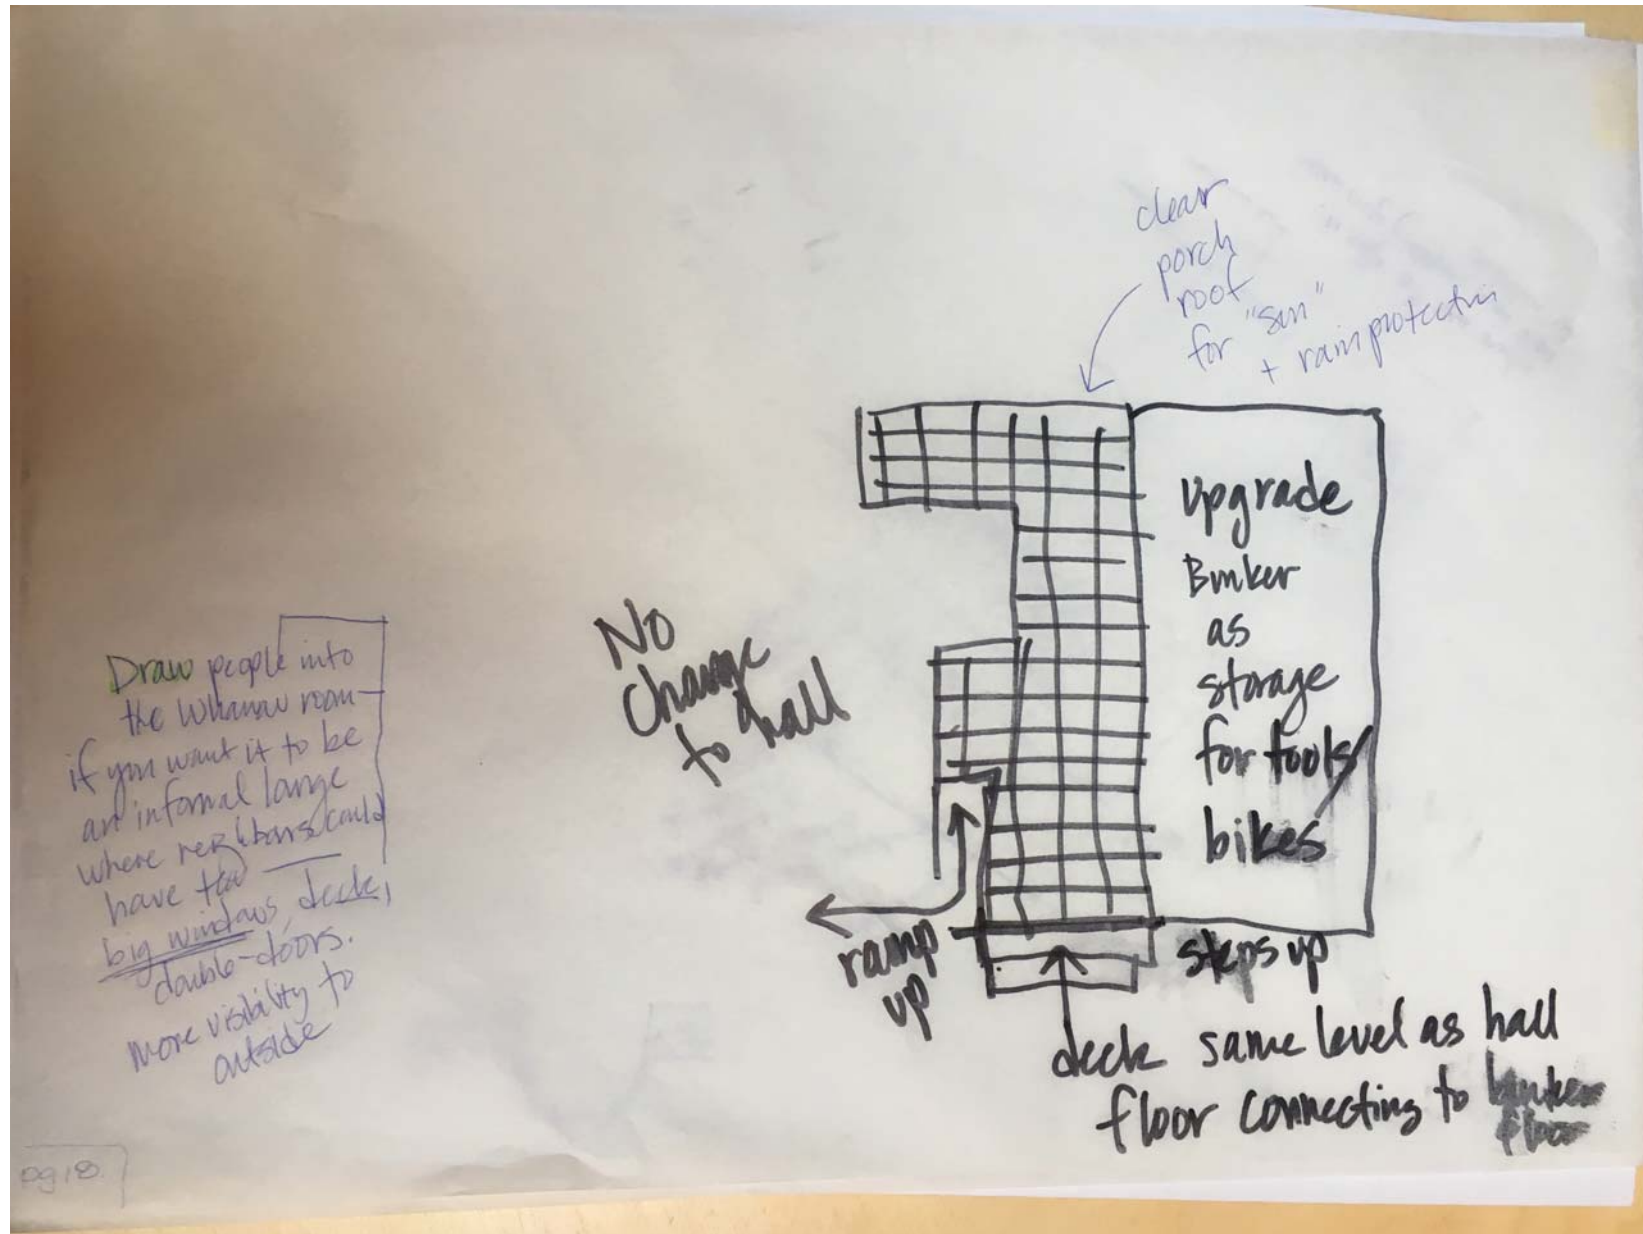 clear
porch
roof
for "sun"
+ rain protection
upgrade
Bunker
as
storage
for tools/
bikes
No
change
to hall
Draw people into
the Whanau room
if you want it to be
an informal lounge
where neighbors could
have tea
big windows, deck,
double-doors.
more visibility to
outside
ramp
up
steps up
deck same level as hall
floor connecting to bunker
floor
pg 18.